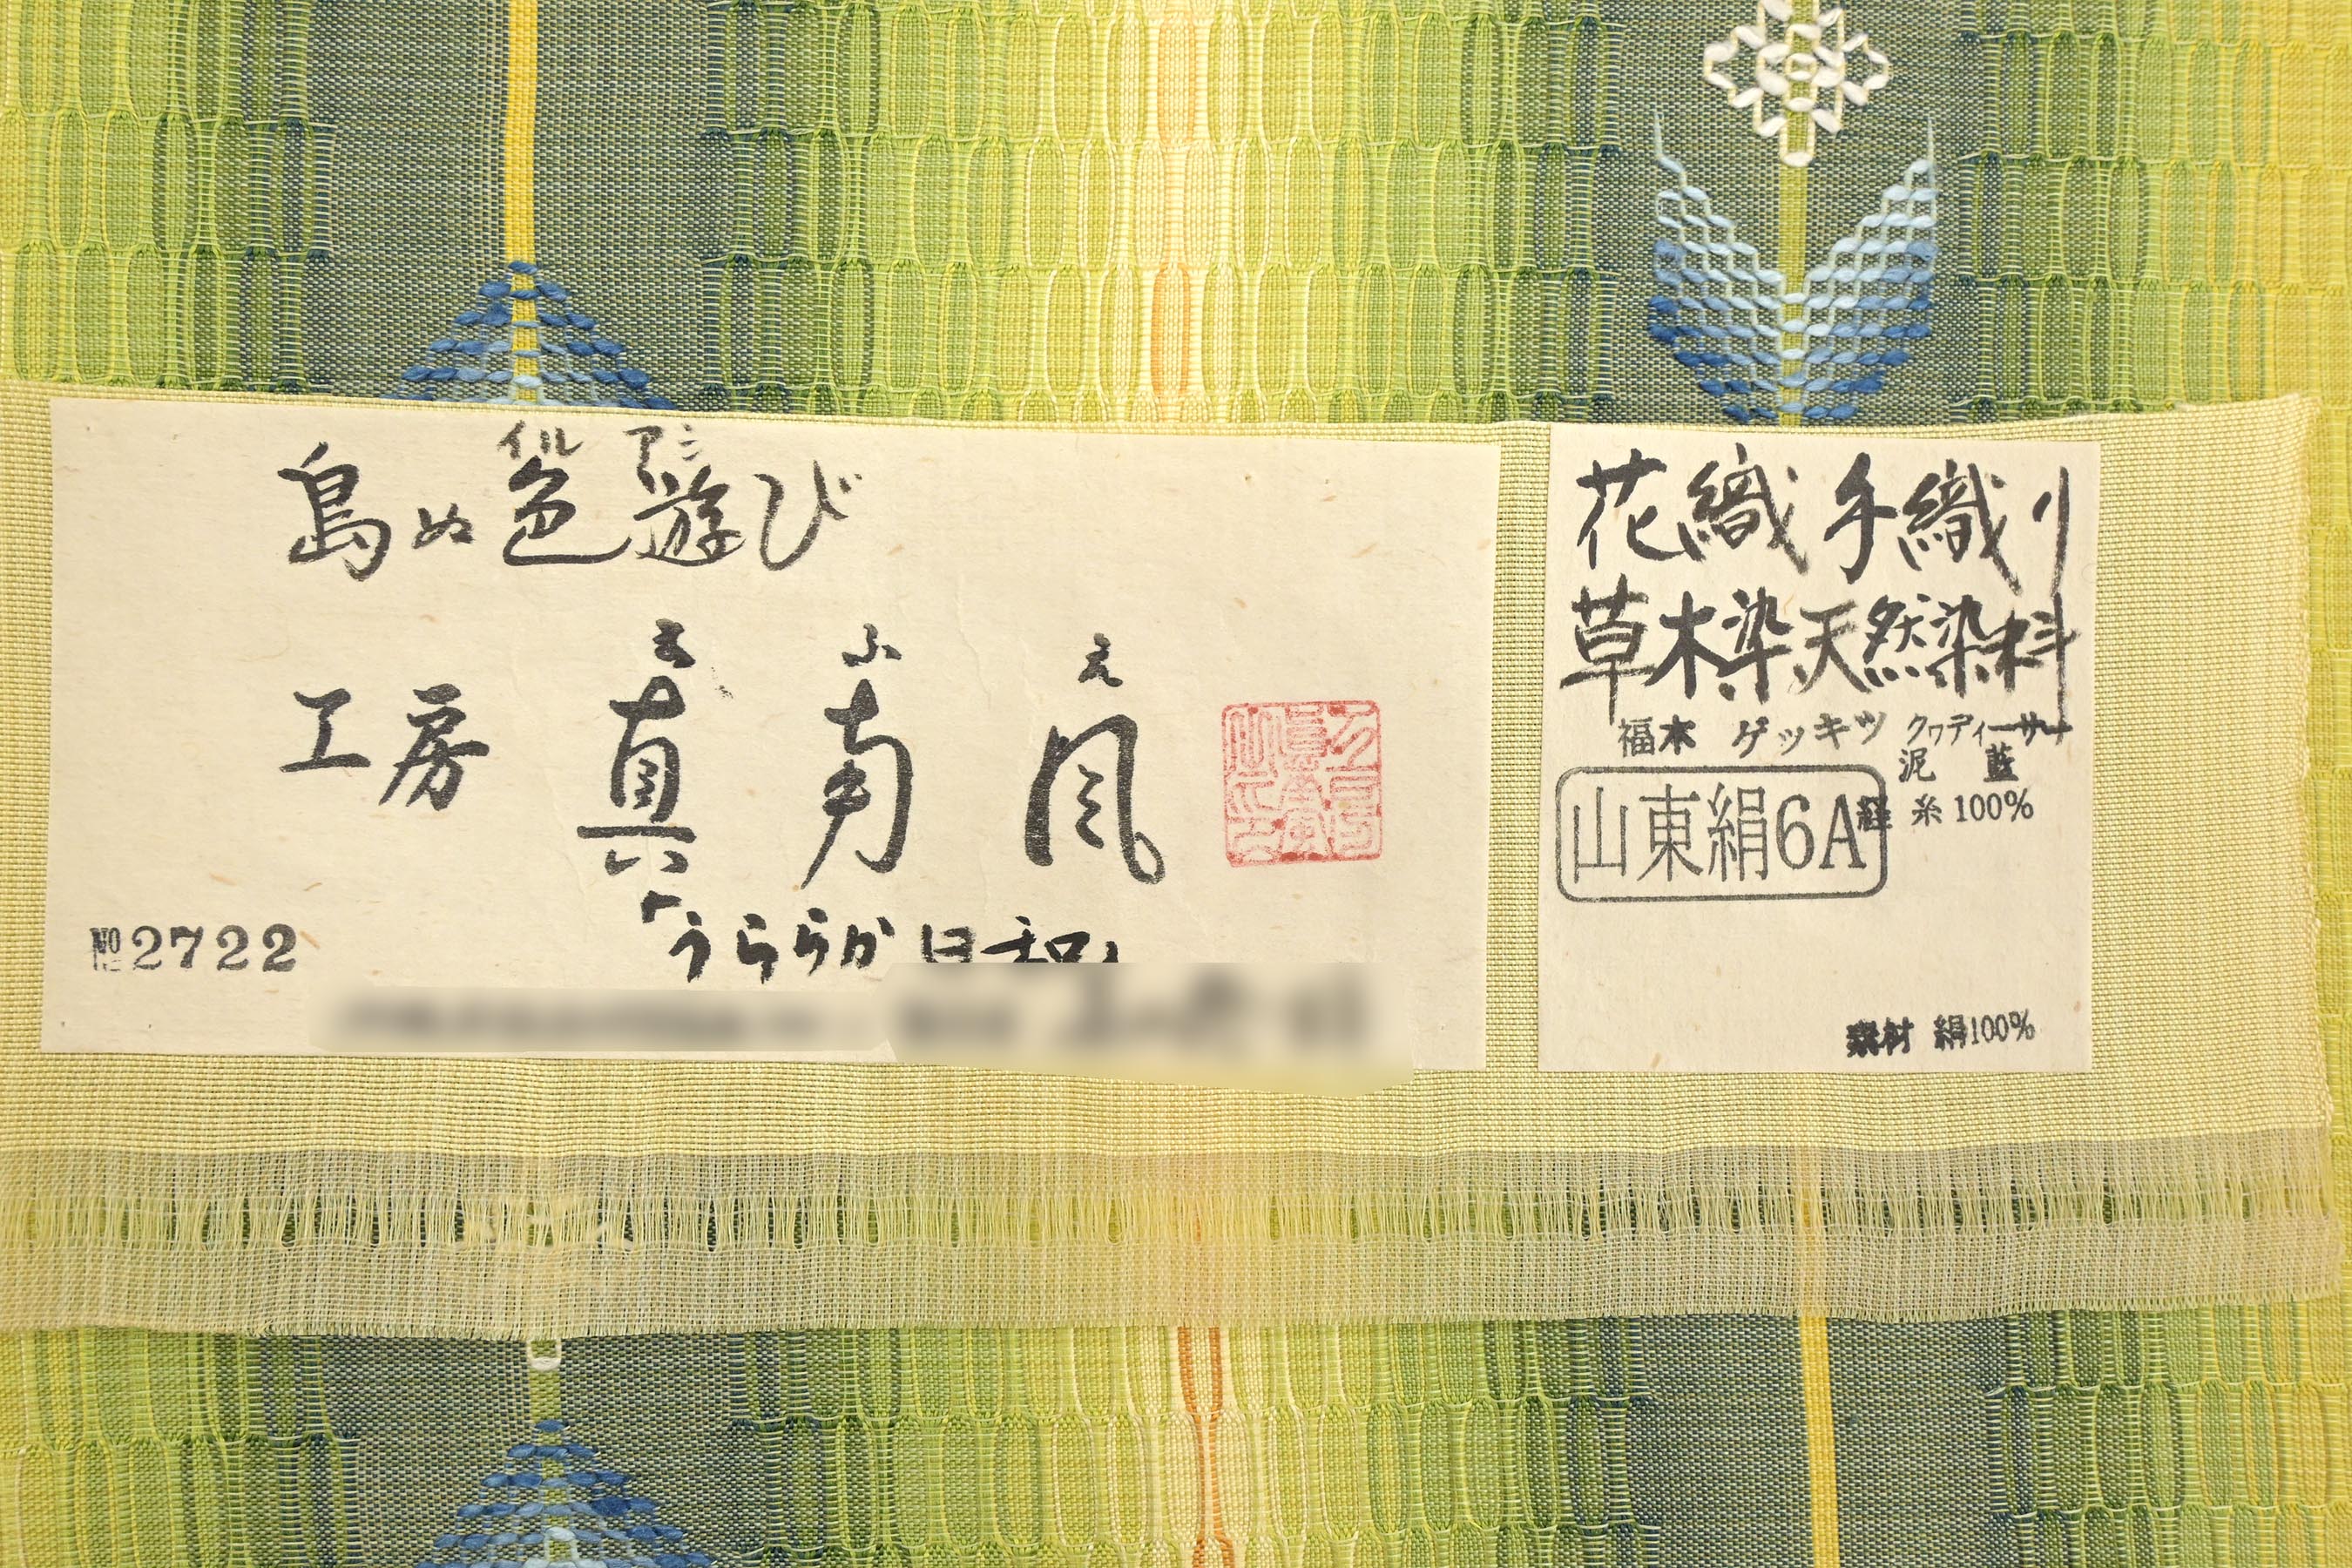 イル アシ
島ぬ色遊び
ま ふ え
工房 真南風
№2722
「うららか日和」
花織手織り
草木染天然染料
福木 ゲッキツ クヮディーサー
泥 藍
山東絹6A 経糸100%
素材 絹100%